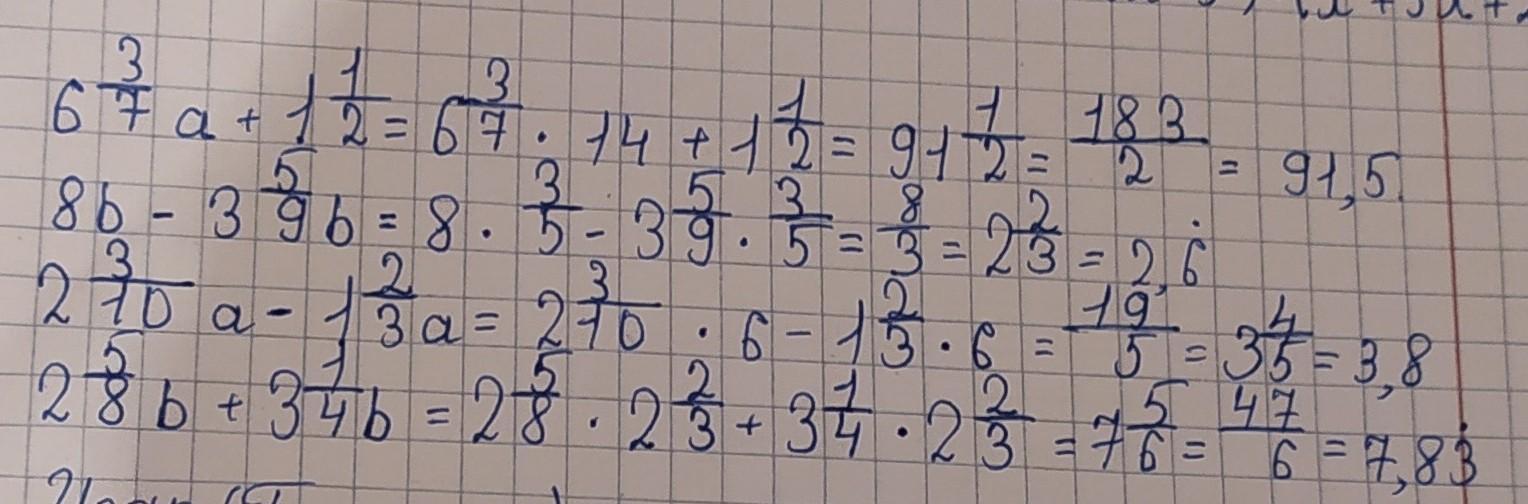 6 3/7 a + 1 1/2 = 6 3/7 · 14 + 1 1/2 = 91 1/2 = 183/2 = 91,5.
8b - 3 5/9 b = 8 · 3/5 - 3 5/9 · 3/5 = 8/3 = 2 2/3 = 2,6̇
2 3/10 a - 1 2/3 a = 2 3/10 · 6 - 1 2/3 · 6 = 19/5 = 3 4/5 = 3,8
2 5/8 b + 3 1/4 b = 2 5/8 · 2 2/3 + 3 1/4 · 2 2/3 = 7 5/6 = 47/6 = 7,83̇